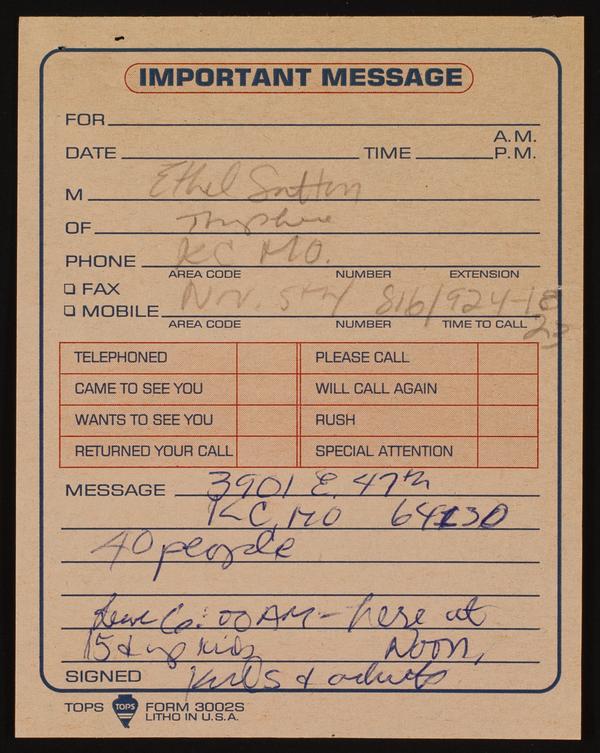 IMPORTANT MESSAGE
FOR
A.M.
DATE TIME P.M.
M Ethel Sutton
OF
PHONE KC MO.
AREA CODE NUMBER EXTENSION
FAX
MOBILE Nov. 5th 816/924-18
23
AREA CODE NUMBER TIME TO CALL
TELEPHONED PLEASE CALL
CAME TO SEE YOU WILL CALL AGAIN
WANTS TO SEE YOU RUSH
RETURNED YOUR CALL SPECIAL ATTENTION
MESSAGE 3901 E. 47th
KC, MO 64130
40 people
leave 6:00 AM - here at
15 & up kids Noon,
SIGNED kids & adults
TOPS TOPS FORM 3002S
LITHO IN U.S.A.